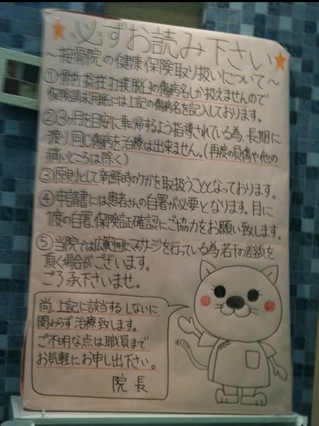 必ずお読み下さい
〜接骨院の健康保険取り扱いについて〜
①骨折 捻挫 打撲 脱臼の傷病名しか扱えませんので
保険請求用紙には上記の傷病名を記入しております。
②3ヶ月を目安に転帰するよう指導されている為、長期に
渡り、同じ傷病を治療は出来ません。(再度の負傷や他の
痛いところは除く)
③原則として新鮮時のケガを取扱うこととなっております。
④申請書には患者さんの自署が必要となります。月に
1度の自署、保険証確認にご協力をお願い致します。
⑤当院では広範囲にマッサージを行っている為若干の差額を
頂く場合がございます。
ご了承下さいませ。
尚、上記に該当する しないに
関わらず 治療致します。
ご不明な点は職員まで
お気軽にお申し出下さい。
院長